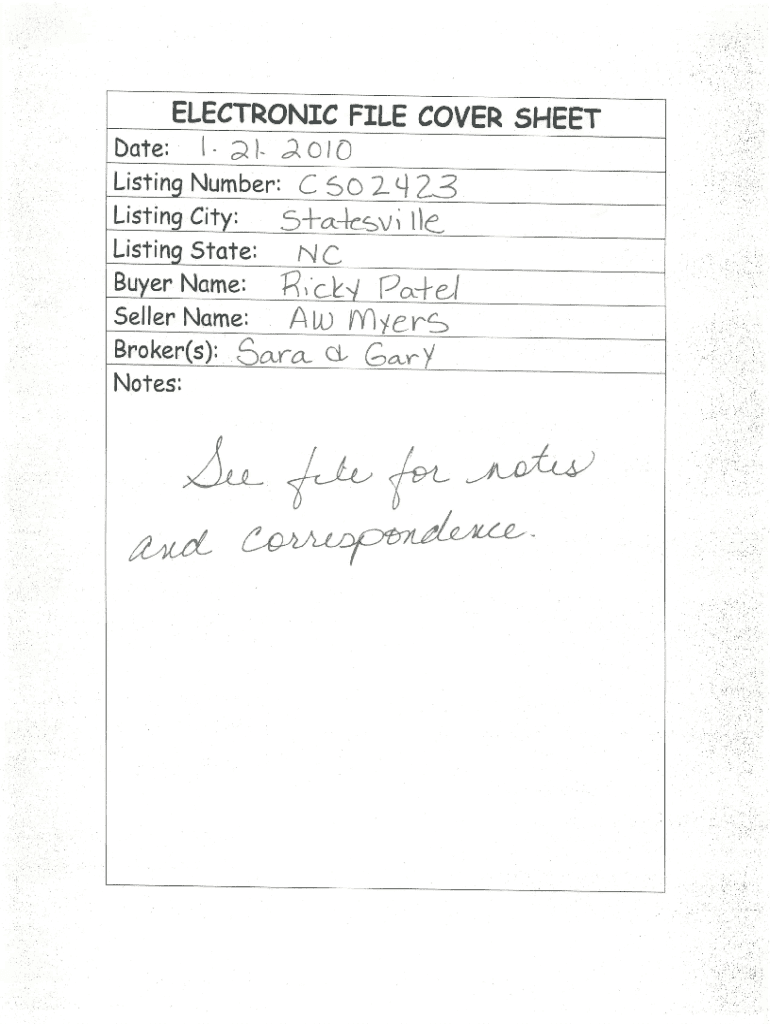 ELECTRONIC FILE COVER SHEET
Date: 1. 21. 2010
Listing Number: CS02423
Listing City: Statesville
Listing State: NC
Buyer Name: Ricky Patel
Seller Name: AW Myers
Broker(s): Sara & Gary
Notes:
See file for notes
and correspondence.